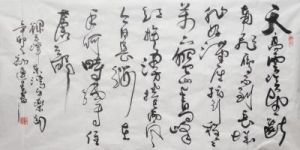 天高雲淡望斷
南飛雁不到長城
非好漢屈指行程二
萬六盤山上高峰
紅旗漫卷西風
今日長纓在
手何時縛住
蒼龍